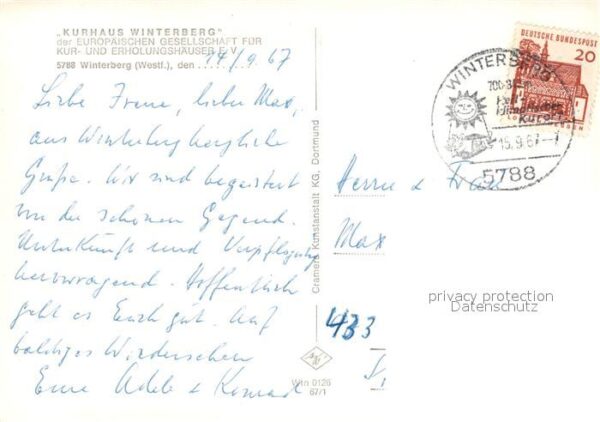 „KURHAUS WINTERBERG"
der EUROPÄISCHEN GESELLSCHAFT FÜR
KUR- UND ERHOLUNGSHÄUSER E. V.
5788 Winterberg (Westf.), den 14/9.67
Liebe Irene, lieber Max,
aus Winterberg herzliche
Grüße. Wir sind begeistert
von der schönen Gegend.
Unterkunft und Verpflegung
hervorragend. Hoffentlich
geht es Euch gut. Auf
baldiges Wiedersehen
Eure Adele + Konrad
Cramers Kunstanstalt KG, Dortmund
Wtn 0126
67/1
DEUTSCHE BUNDESPOST
20
WINTERBERG
15.9.67
5788
Herrn & Frau
Max
433
privacy protection
Datenschutz